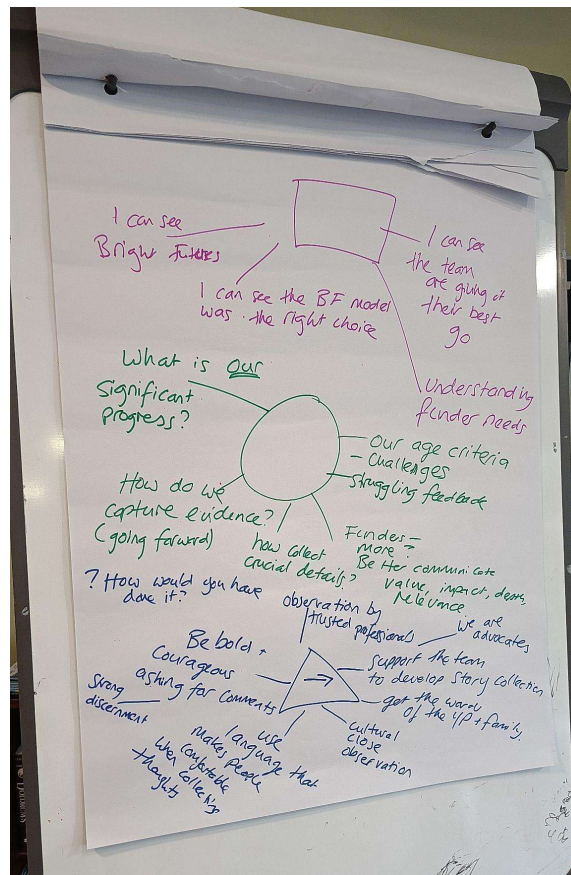 I can see
Bright Futures
I can see the BF model
was the right choice
I can see
the team
are giving it
their best
go
Understanding
funder needs
What is our
significant
progress?
Our age criteria
- challenges
struggling feedback
How do we
capture evidence?
(going forward)
how collect
crucial details?
Funders -
more?
Better communicate
value, impact, depth,
relevance
? How would you have
done it?
observation by
trusted professionals
we are
advocates
support the team
to develop story collection
get the word
of the YP + family.
cultural
close
observation
use
language that
makes people
comfortable
when collecting
thoughts
Be bold +
courageous
asking for comments
Strong
discernment